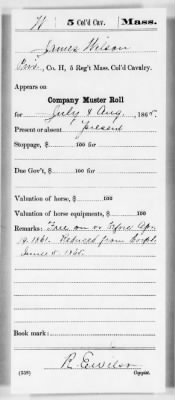 W | 5 Col'd Cav. | Mass.
James Wilson
Pvt., Co. H, 5 Reg't Mass. Col'd Cavalry.
Appears on
Company Muster Roll
for July & Aug., 1865.
Present or absent Present
Stoppage, $ 100 for
Due Gov't, $ 100 for
Valuation of horse, $ 100
Valuation of horse equipments, $ 100
Remarks: Free on or before Apr.
19, 1861. Reduced from Corpl.
June 5, 1865.
Book mark:
R. E. Wilson
(358) Copyist.